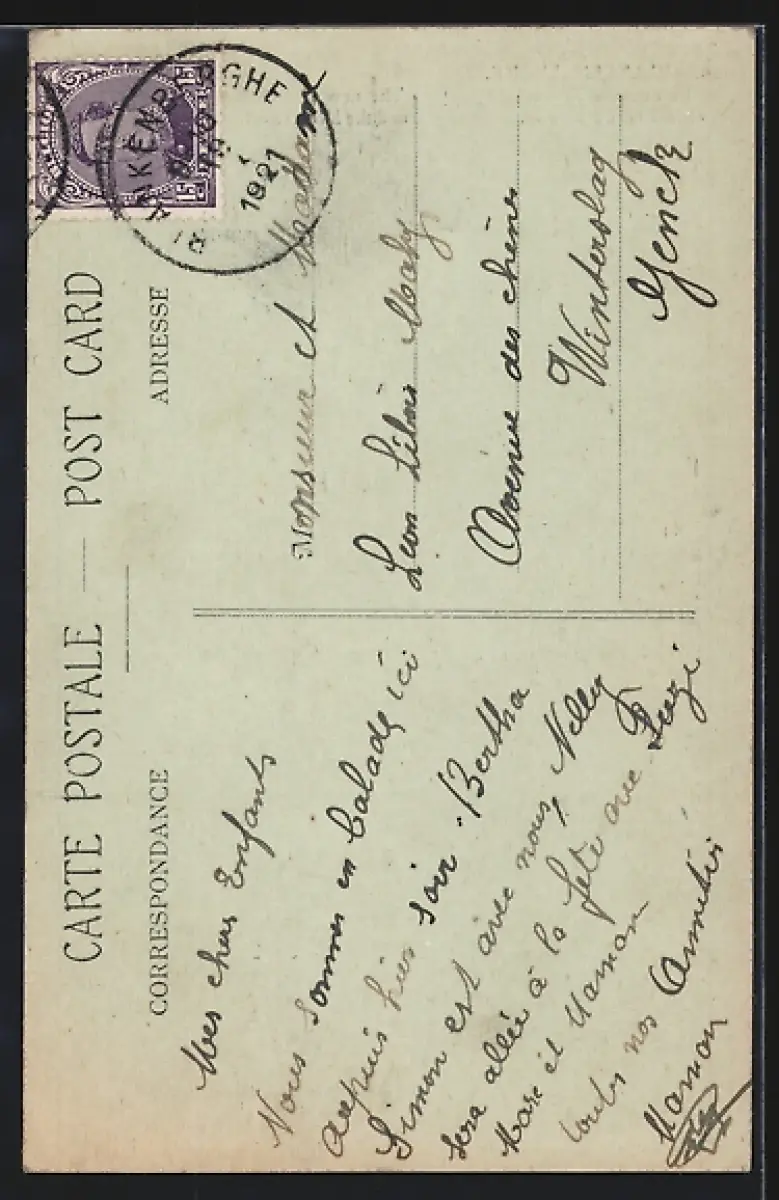 CARTE POSTALE — POST CARD
CORRESPONDANCE
ADRESSE
Mes chers Enfants
Nous sommes en Balade ici
depuis hier soir. Bertha
Simon est avec nous, Nelly
sera allée à la fête avec Suzi
Marc et Maman
toutes nos Amitiés
Maman
15 15
BLANKENBERGHE
1921
Monsieur et Madame
Leon
Avenue des chênes
Winterslag
Genck